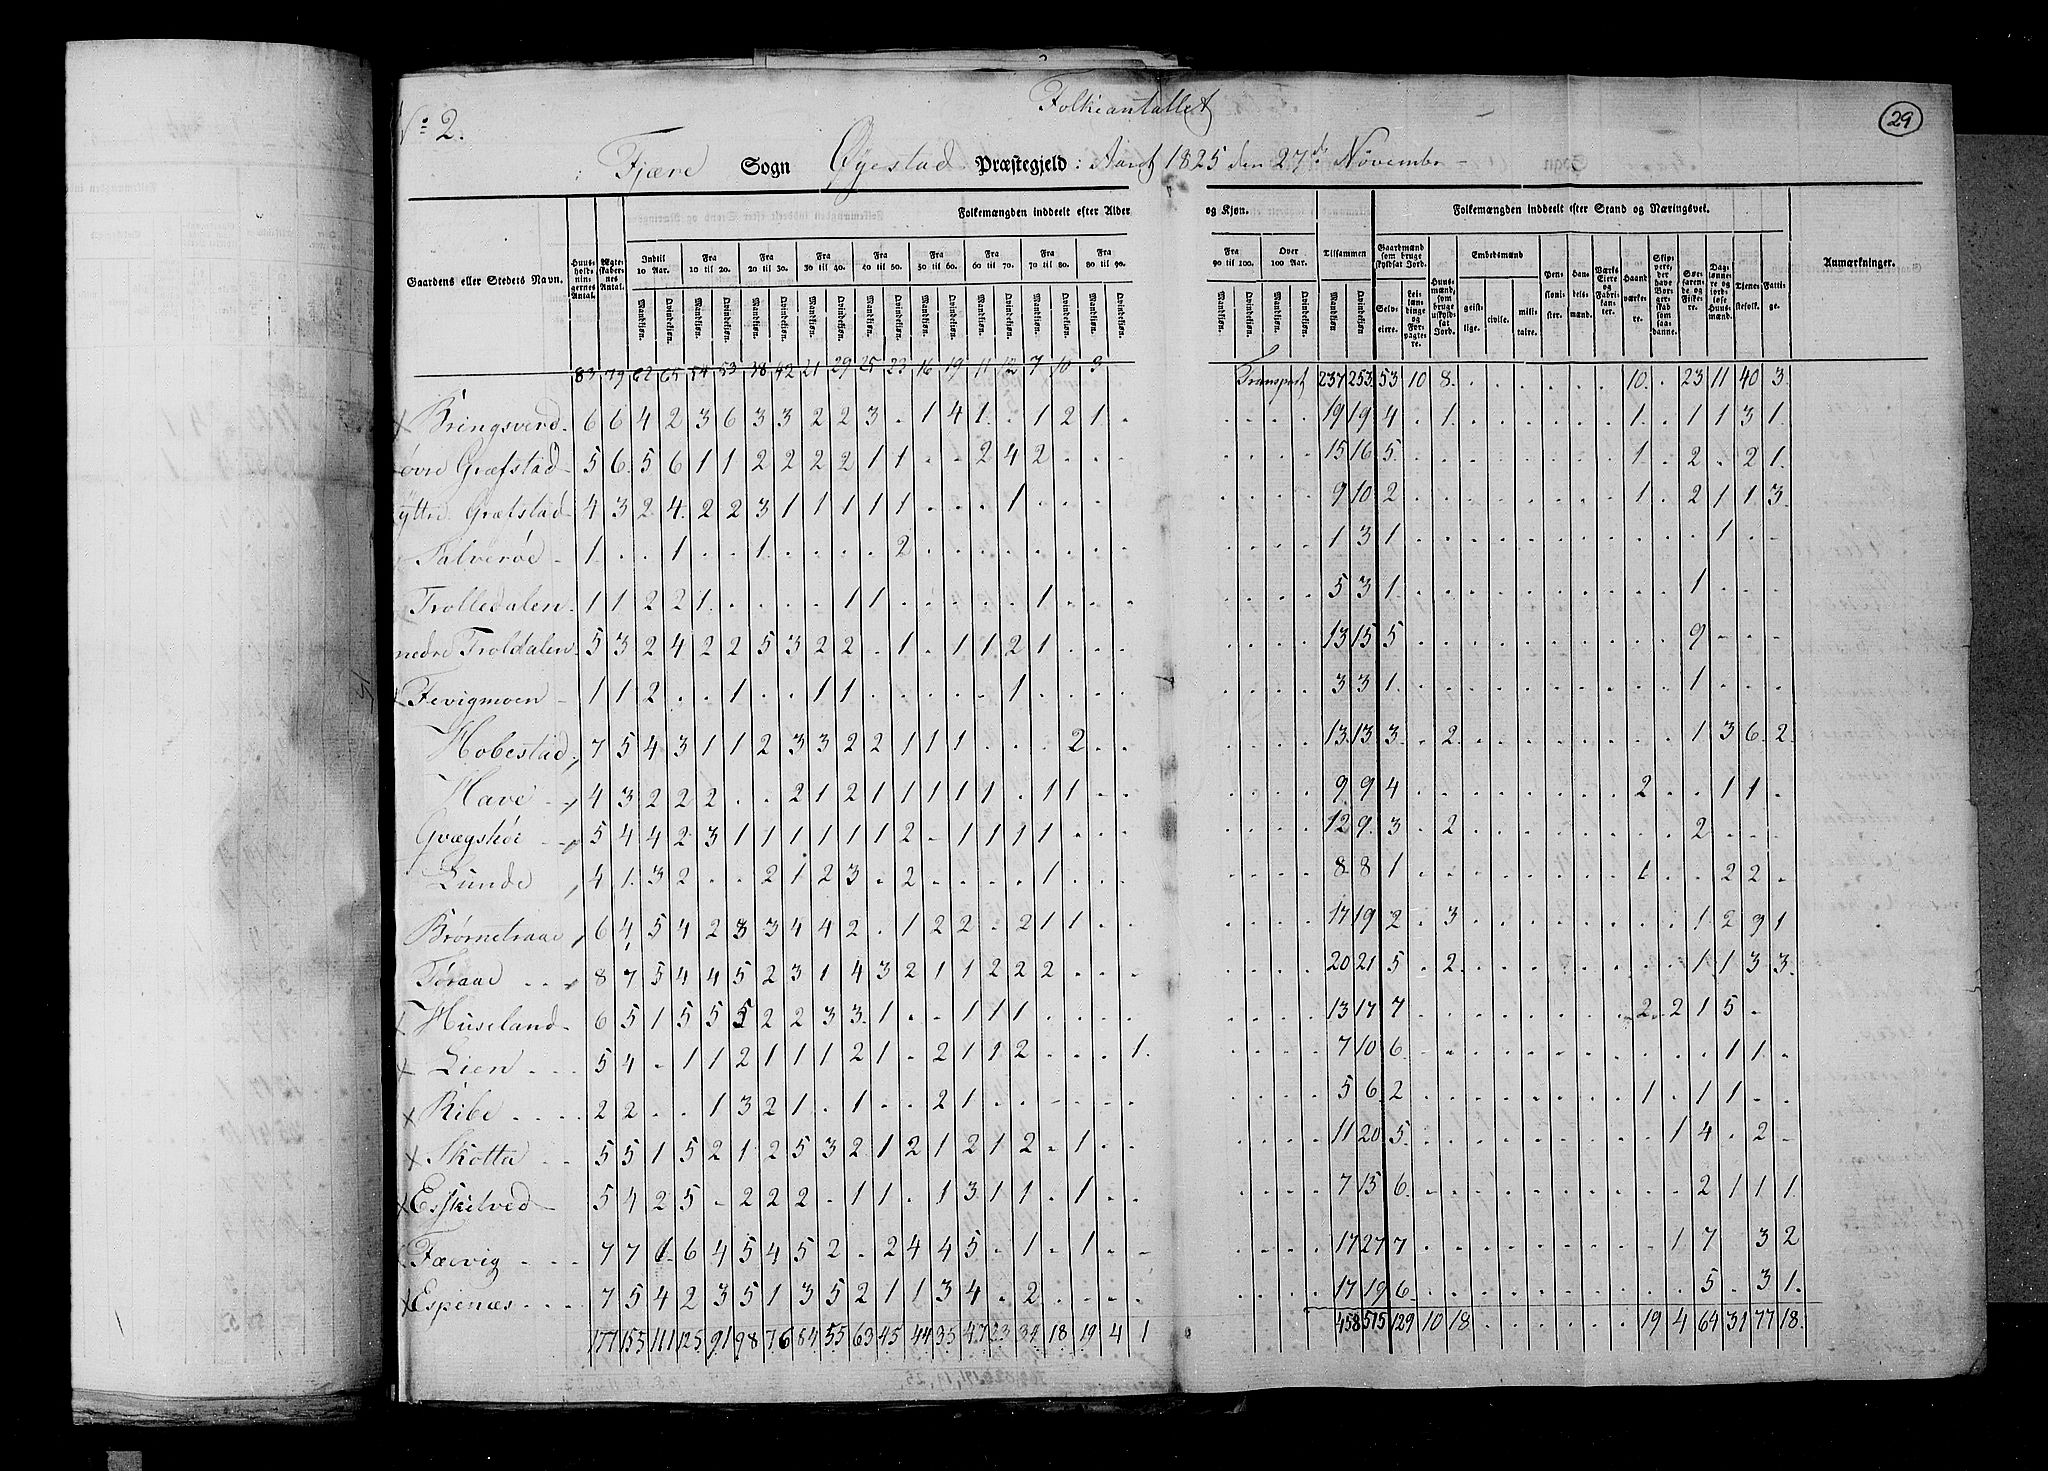 Folkeantallet
29
No 2.
Fjære Sogn Øyestad Præstegjeld: Aaret 1825 den 27de November
Gaardens eller Stedets Navn. Huusholdningernes Antal. Ægteskabernes Antal. Folkemængden inddeelt efter Alder og Kjøn. Tilsammen Folkemængden inddeelt efter Stand og Næringsvei. Anmærkninger.
Indtil 10 Aar. Fra 10 til 20. Fra 20 til 30. Fra 30 til 40. Fra 40 til 50. Fra 50 til 60. Fra 60 til 70. Fra 70 til 80. Fra 80 til 90. Fra 90 til 100. Over 100 Aar.
Mandkjøn. Qvindekjøn. Mandkjøn. Qvindekjøn. Mandkjøn. Qvindekjøn. Mandkjøn. Qvindekjøn. Mandkjøn. Qvindekjøn. Mandkjøn. Qvindekjøn. Mandkjøn. Qvindekjøn. Mandkjøn. Qvindekjøn. Mandkjøn. Qvindekjøn. Mandkjøn. Qvindekjøn. Mandkjøn. Qvindekjøn. Mandkjøn. Qvindekjøn.
Gaardmænd som bruge skyldsat Jord. Selveiere. Leilændinge og Forpagtere. Huusmænd, som bruge uskyldsat Jord. Embedsmænd geistlige. civile. militaire. Pensionister. Handelsmænd. Værks Eiere og Fabrikanter. Haandværkere. Skippere, der have Borgerskab som saadanne. Søefarende og Fiskere. Daglønnere og jordløse Huusmænd. Tjenestefolk. Fattige.
83 79 62 65 54 53 38 42 21 29 25 23 16 19 11 12 7 10 3 Transport 237 253 53 10 8 10 23 11 40 3
Bringsverd 6 6 4 2 3 6 3 3 2 2 3 . 1 4 1 . 1 2 1 . 19 19 4 . 1 1 . 1 1 3 1
øvre Græfstad 5 6 5 6 1 1 2 2 2 2 1 1 . . 2 4 2 . . . 15 16 5 1 . 2 . 2 1
yttre Græfstad 4 3 2 4 2 2 3 1 1 1 1 1 . . . 1 . . . 9 10 2 1 . 2 1 1 3
Salverøe 1 . . 1 . . 1 . . . . 2 1 3 1 1
Trolledalen 1 1 2 2 1 . . . . 1 1 . . . . . 1 5 3 1 1
nedre Troldalen 5 3 2 4 2 2 5 3 2 2 . 1 . 1 1 2 1 13 15 5 9
Fevigmoen 1 1 2 . . 1 . . 1 1 . . . . . 1 3 3 1 1
Hobestad 7 5 4 3 1 1 2 3 3 2 2 1 1 1 . . . 2 13 13 3 . 2 1 3 6 2
Have 4 3 2 2 2 . . 2 1 2 1 1 1 1 1 . 1 1 9 9 4 2 . . 1 1
5 4 4 2 3 1 1 1 1 1 1 2 . 1 1 1 1 12 9 3 . 2 2
Lunde 4 1 3 2 . . 2 1 2 3 . 2 . . . . 1 8 8 1 1 . . 2 2
6 4 5 4 2 3 3 4 4 2 . 1 2 2 . 2 1 1 17 19 2 . 3 1 2 9 1
Føraae 8 7 5 4 4 5 2 3 1 4 3 2 1 1 2 2 2 20 21 5 . 2 1 1 3 3
Huseland 6 5 1 5 5 5 2 2 3 3 1 . . 1 1 1 13 17 7 2 2 1 5
Lien 5 4 . 1 1 2 1 1 1 2 1 . 2 1 1 2 . . . 1 7 10 6 1 1
Ribe 2 2 . . 1 3 2 1 . 1 . . 2 1 5 6 2 1 . 1 1
Skotta 5 5 1 5 2 1 2 5 3 2 1 2 1 2 1 2 . 1 11 20 5 1 4 . 2
Esskelved 5 4 2 5 . 2 2 2 . 1 1 . 1 3 1 1 . 1 7 15 6 2 1 1 1
Fævig 7 7 6 6 4 5 4 5 2 . 2 4 4 5 . 1 . 1 17 27 7 1 7 . 3 2
Espenæs 7 5 4 2 3 5 1 3 5 2 1 1 3 4 . 2 17 19 6 5 . 3 1
177 155 111 125 91 98 76 84 55 63 45 44 35 47 23 34 18 19 4 1 458 515 129 10 18 19 4 64 31 77 18